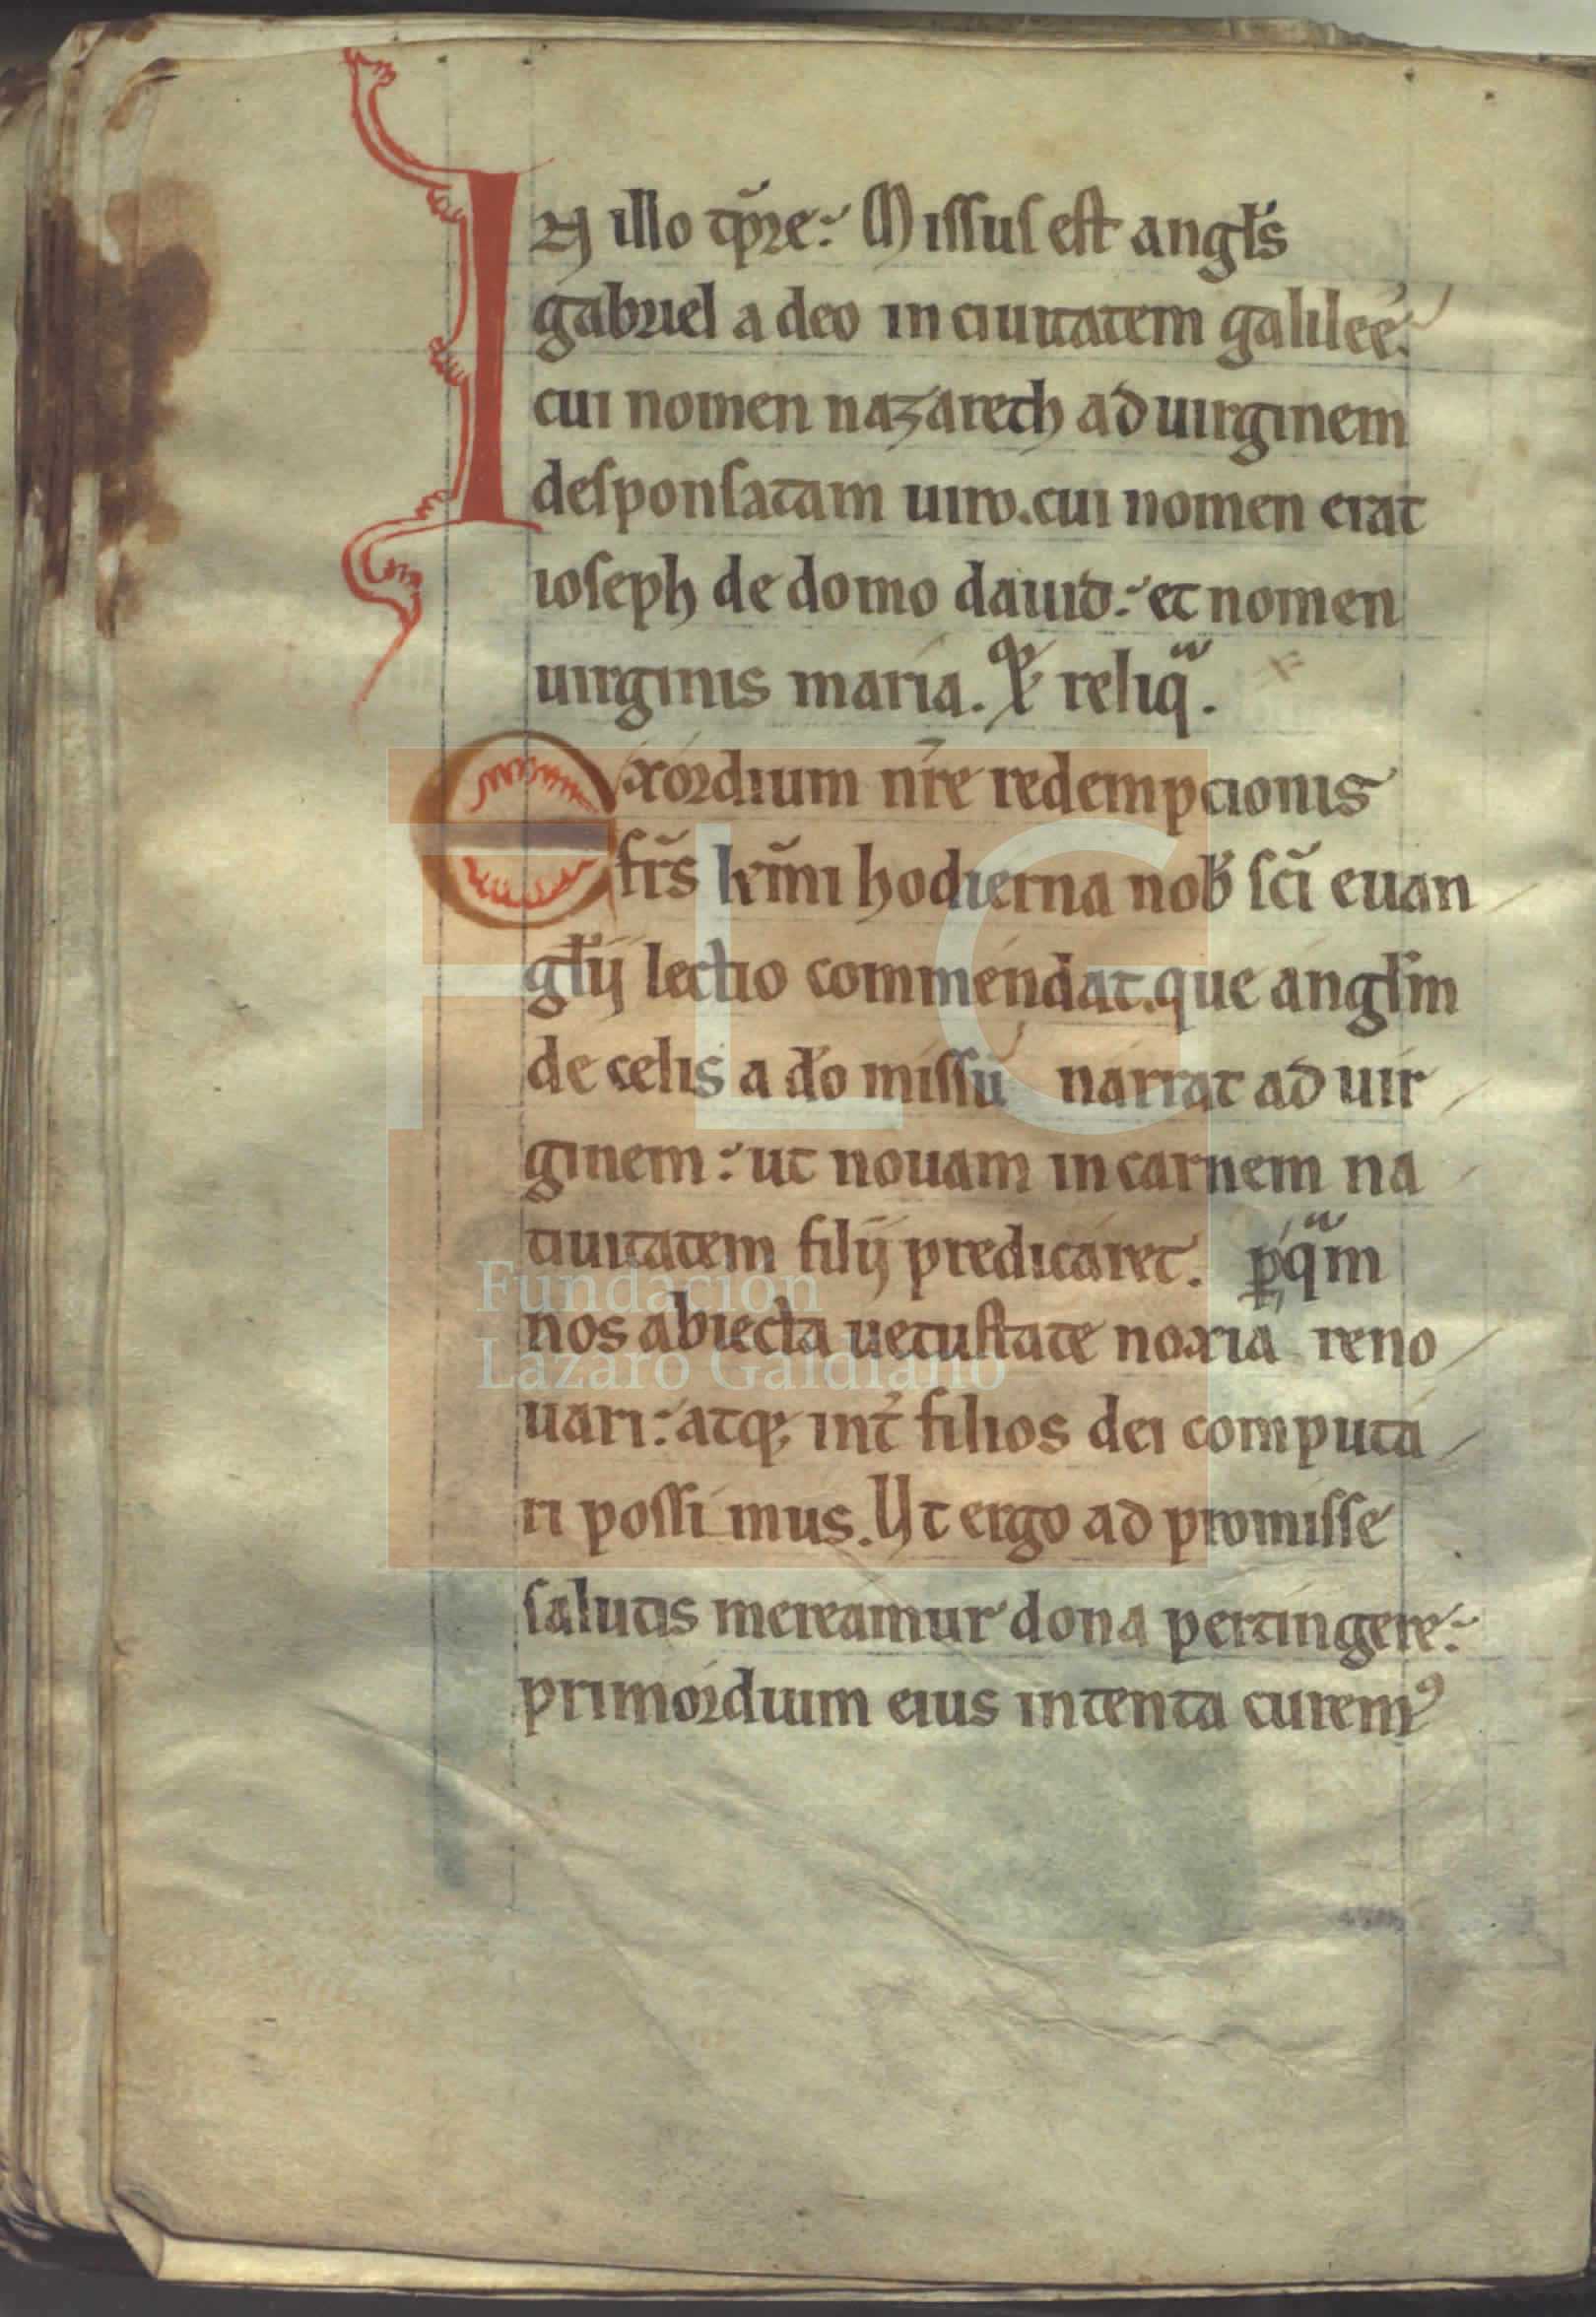 IN illo tp̃re: Missus est angl̃s
gabriel a deo in ciuitatem galilee:
cui nomen nazareth ad uirginem
desponsatam uiro. cui nomen erat
ioseph de domo dauid: et nomen
uirginis maria. reliq̃.
Exordium nr̃e redempcionis
fr̃s kr̃mi hodierna nob̃ sc̃i euan
gl̃ij lectio commendat. que angl̃m
de celis a d̃o missũ narrat ad uir
ginem: ut nouam in carnem na
tiuitatem filij predicaret. ꝑ q̃m
nos abiecta uetustate noxia reno
uari: atq; int̃ filios dei computa
ri possimus. Ut ergo ad promisse
salutis mereamur dona pertingere:
primordium eius intenta curemꝰ
FLG
Fundación
Lázaro Galdiano